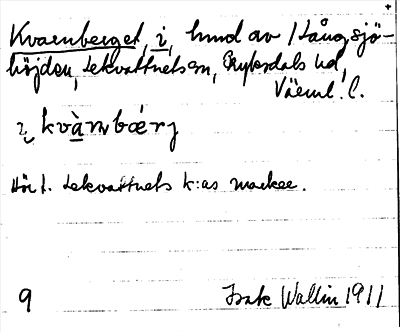 Kvarnberget, i, hmd av Långsjö-
höjden, Lekvattnets sn, Fryksdals hd,
Värml. l.
i kvà̠rnbǽrj
Hör t. Lekvattnets k:as marker.
9 Isak Wallin 1911